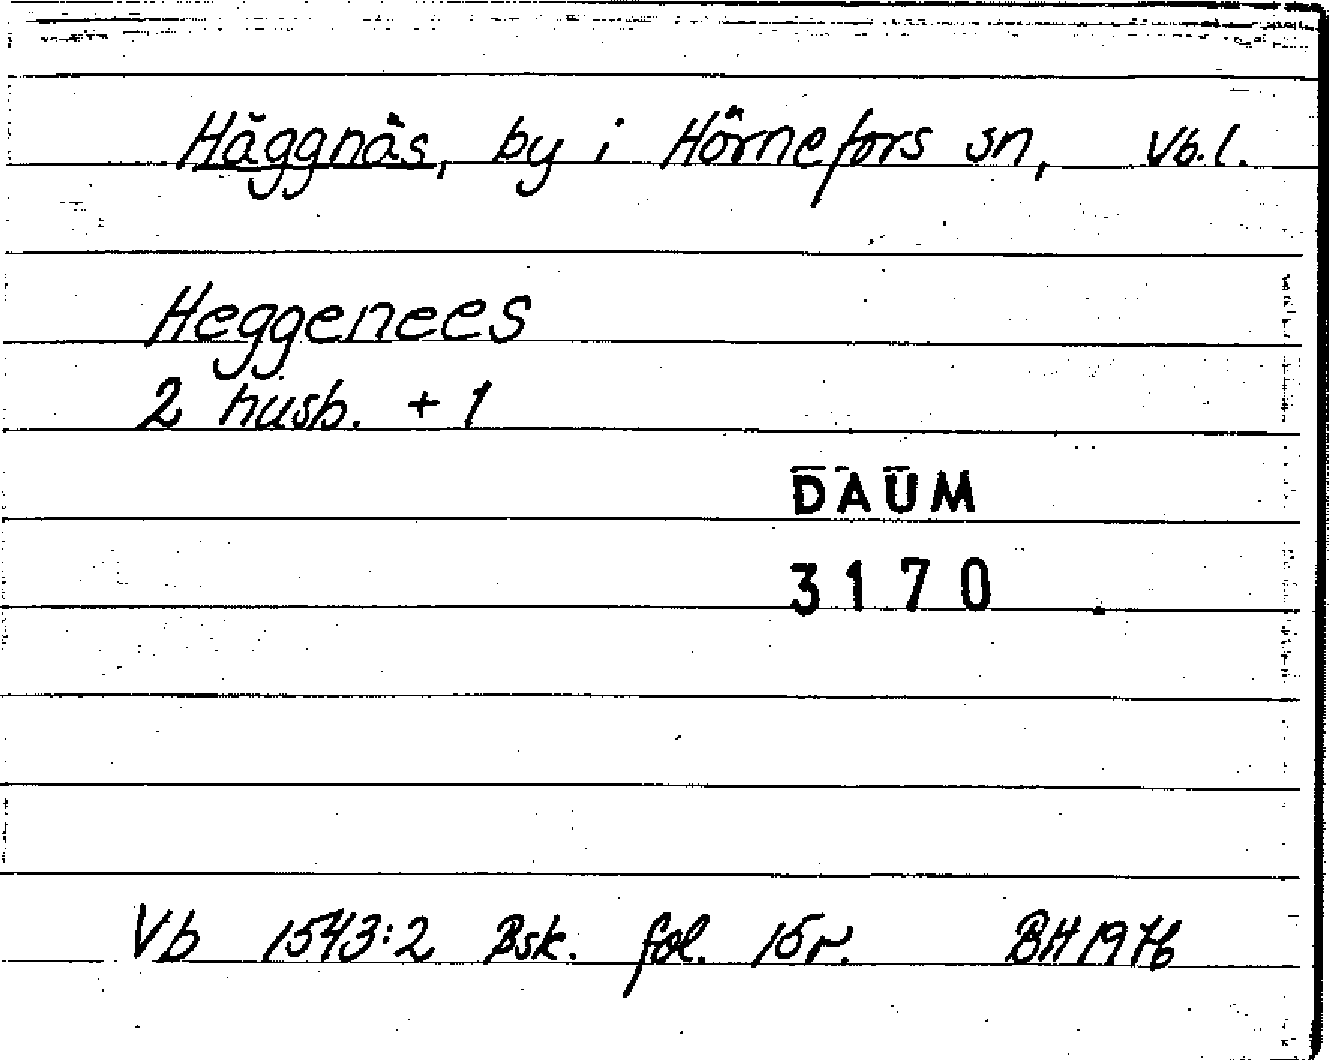 Häggnäs, by i Hörnefors sn, Vb.l.
Heggenees
2 husb. + 1
DAUM
3170
Vb 1543:2 Bsk. fol. 15r. BH 1976